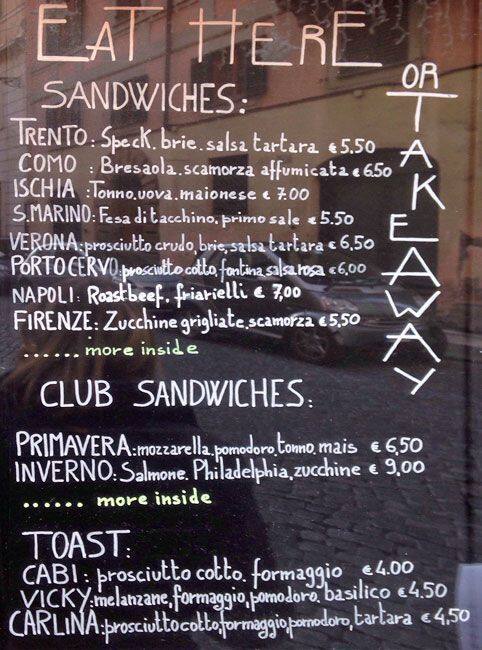 EAT HERE
OR TAKEAWAY
SANDWICHES:
TRENTO: Speck. brie. salsa tartara € 5,50
COMO : Bresaola. scamorza affumicata € 6.50
ISCHIA :Tonno.uova.maionese € 7.00
S.MARINO: Fesa di tacchino, primo sale € 5.50
VERONA:prosciutto crudo, brie, salsa tartara € 6,50
PORTO CERVO:prosciutto cotto, fontina, salsa rosa € 6,00
NAPOLI: Roastbeef, friarielli € 7,00
FIRENZE: Zucchine grigliate, scamorza € 5,50
...... more inside
CLUB SANDWICHES:
PRIMAVERA:mozzarella.pomodoro.tonno.mais € 6,50
INVERNO: Salmone. Philadelphia, zucchine € 9,00
...... more inside
TOAST:
CABI: prosciutto cotto. formaggio € 4.00
VICKY:melanzane, formaggio, pomodoro. basilico € 4.50
CARLINA:prosciutto cotto, formaggio, pomodoro, tartara € 4,50